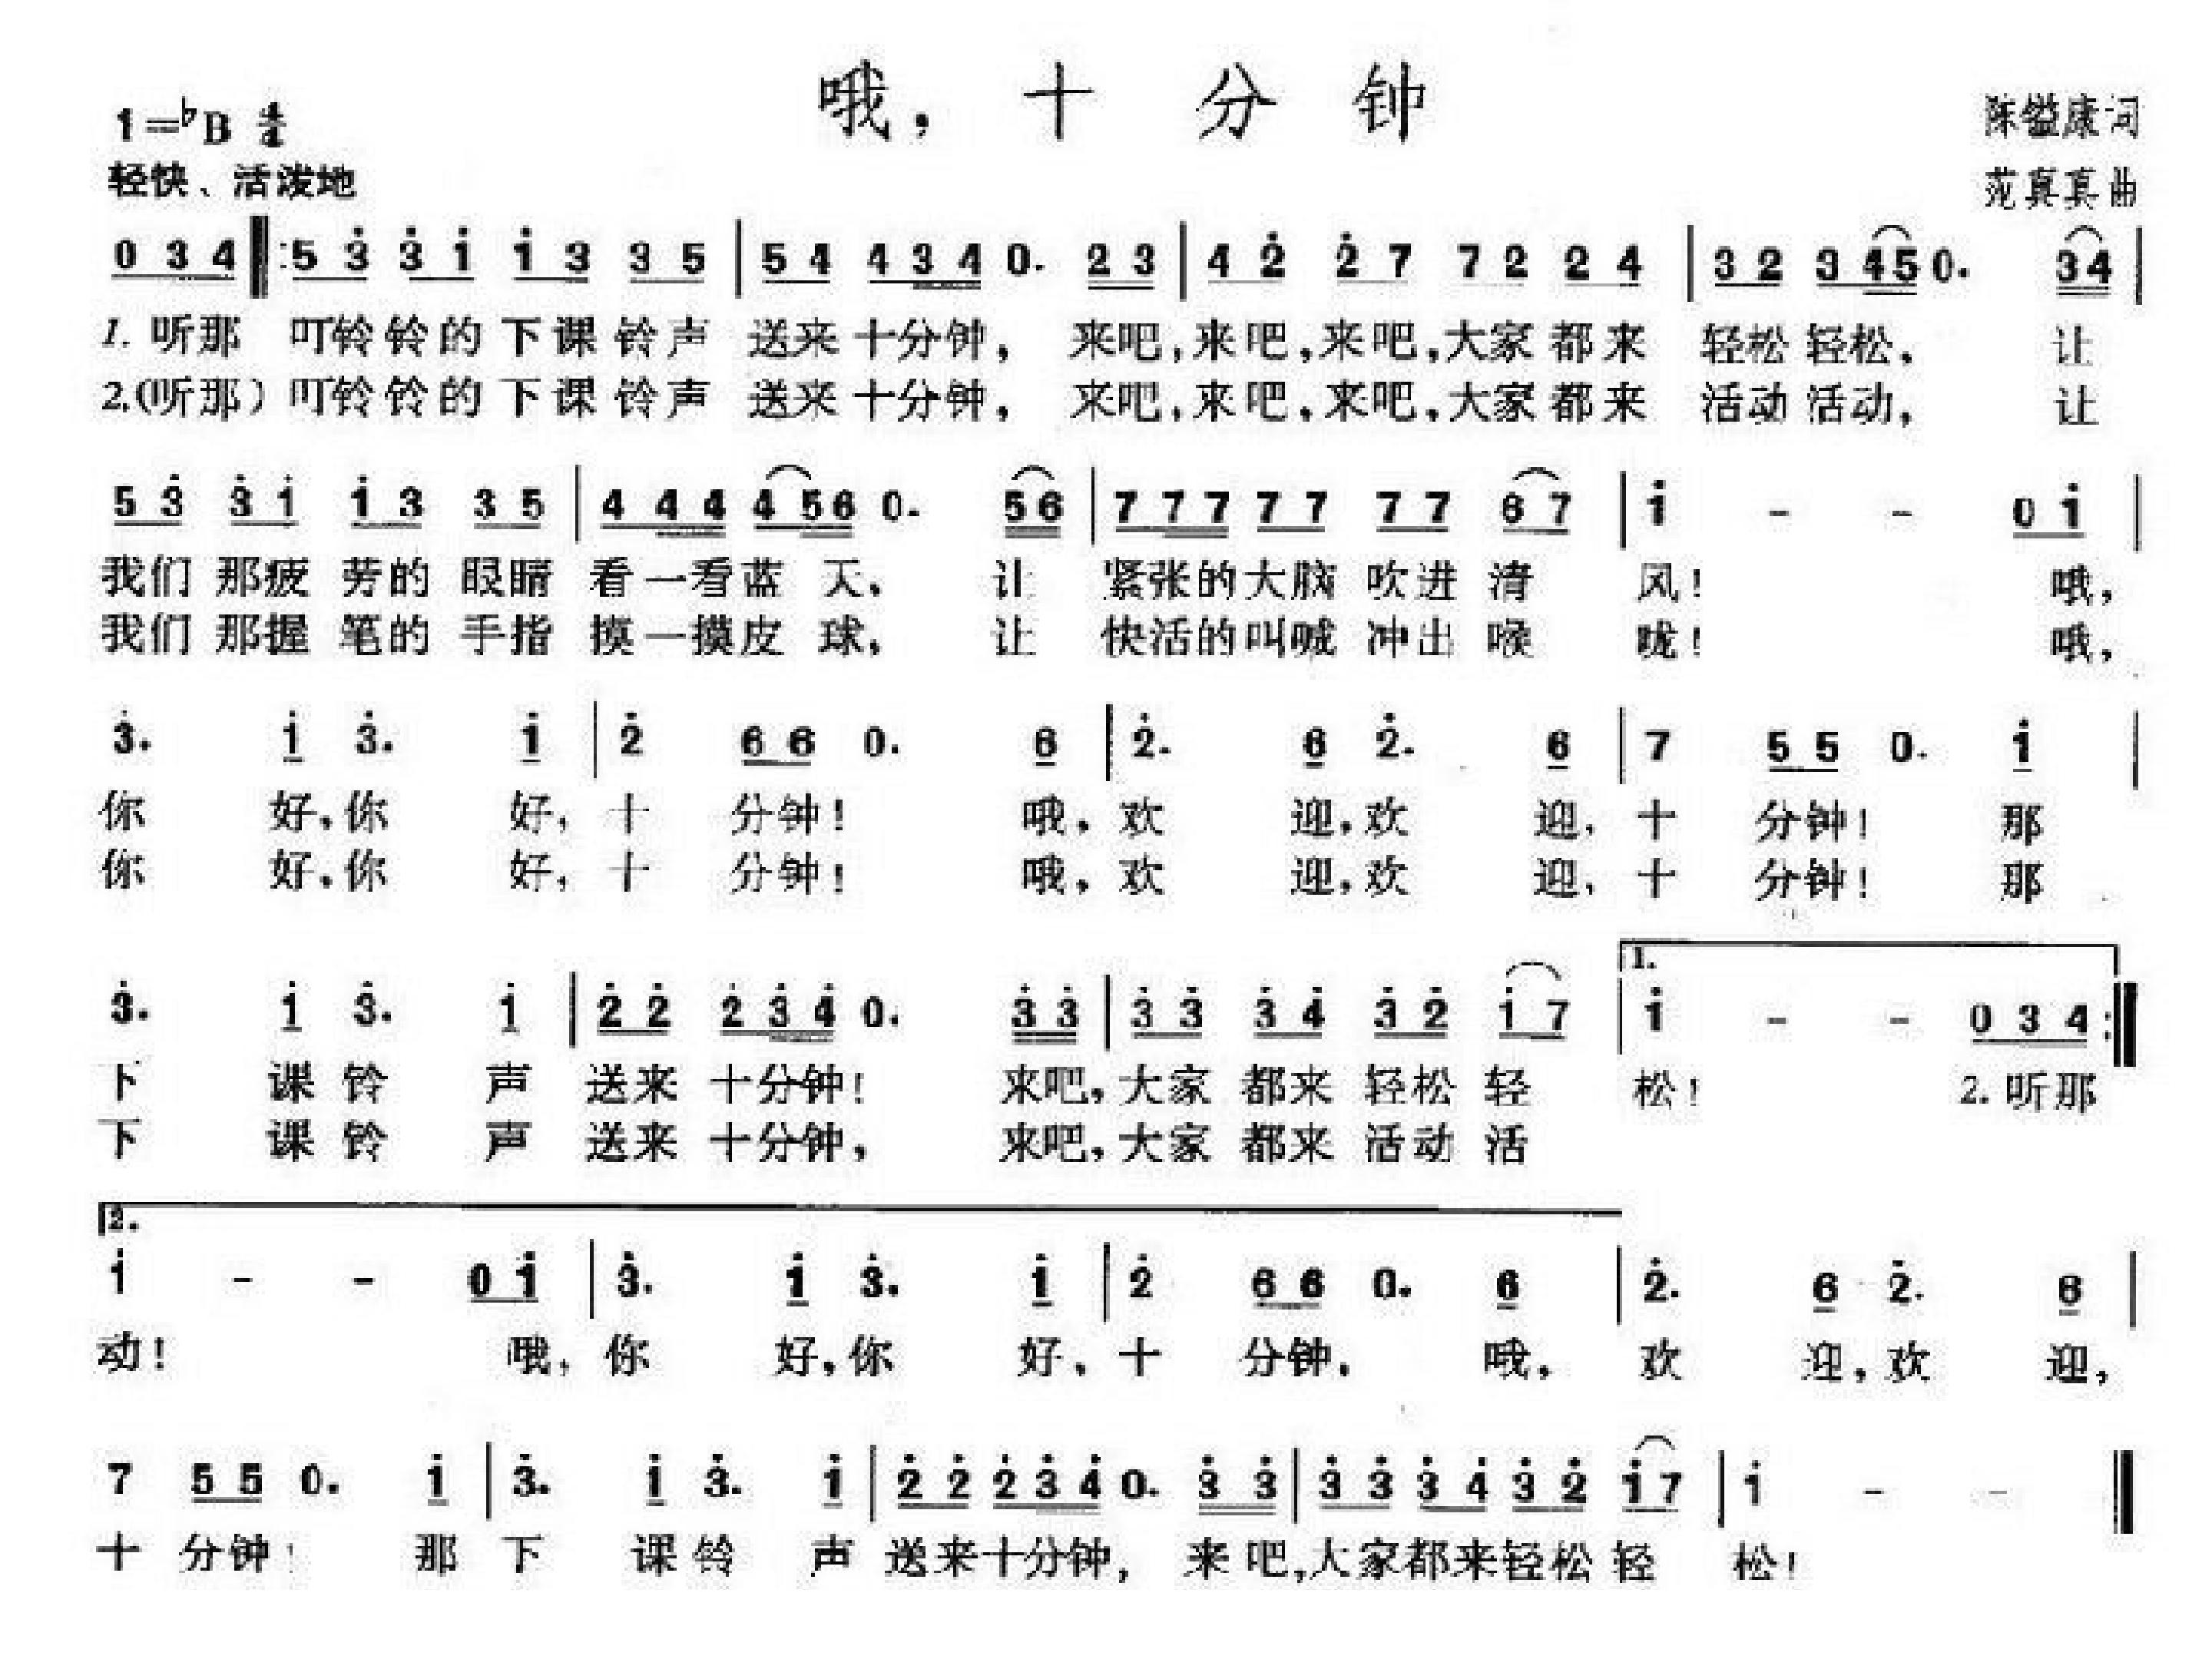 哦，十分钟
1=♭B 4/4
陈镒康词
轻快、活泼地
范真真曲
0 3 4 ‖: 5 3̇ 3̇ 1̇ 1̇ 3 3 5 | 5 4 4 3 4 0. 2 3 | 4 2̇ 2̇ 7 7 2 2 4 | 3 2 3 4 5 0. 3 4 |
1. 听那 叮铃铃的下课铃声 送来十分钟， 来吧，来吧，来吧，大家都来 轻松轻松， 让
2.（听那）叮铃铃的下课铃声 送来十分钟， 来吧，来吧，来吧，大家都来 活动活动， 让
5 3̇ 3̇ 1̇ 1̇ 3 3 5 | 4 4 4 4 5 6 0. 5 6 | 7 7 7 7 7 7 7 6 7 | 1̇ - - 0 1̇ |
我们那疲劳的眼睛 看一看蓝天， 让 紧张的大脑吹进清 风！ 哦，
我们那握笔的手指 摸一摸皮球， 让 快活的叫喊冲出喉 咙！ 哦，
3̇. 1̇ 3̇. 1̇ | 2̇ 6 6 0. 6 | 2̇. 6 2̇. 6 | 7 5 5 0. 1̇ |
你 好，你 好，十 分钟！ 哦，欢 迎，欢 迎，十 分钟！ 那
你 好，你 好，十 分钟！ 哦，欢 迎，欢 迎，十 分钟！ 那
1.
3̇. 1̇ 3̇. 1̇ | 2̇ 2̇ 2̇ 3̇ 4̇ 0. 3̇ 3̇ | 3̇ 3̇ 3̇ 4̇ 3̇ 2̇ 1̇ 7 | 1̇ - - 0 3 4 :‖
下 课铃 声 送来十分钟！ 来吧，大家都来轻松轻 松！ 2.听那
下 课铃 声 送来十分钟， 来吧，大家都来活动活
2.
1̇ - - 0 1̇ | 3̇. 1̇ 3̇. 1̇ | 2̇ 6 6 0. 6 | 2̇. 6 2̇. 6 |
动！ 哦，你 好，你 好，十 分钟， 哦， 欢 迎，欢 迎，
7 5 5 0. 1̇ | 3̇. 1̇ 3̇. 1̇ | 2̇ 2̇ 2̇ 3̇ 4̇ 0. 3̇ 3̇ | 3̇ 3̇ 3̇ 4̇ 3̇ 2̇ 1̇ 7 | 1̇ - - ‖
十 分钟！ 那 下 课铃 声 送来十分钟， 来吧，大家都来轻松轻 松！